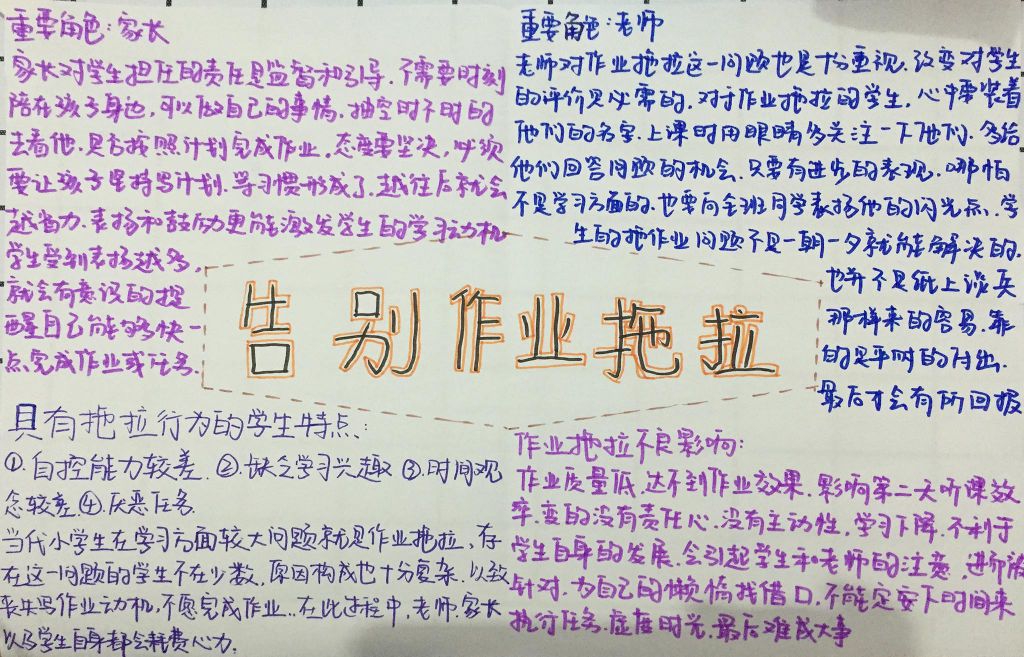 重要角色：家长
家长对学生担任的责任是监督和引导．不需要时刻
陪在孩子身边，可以做自己的事情．抽空时不时的
去看他．是否按照计划完成作业，态度要坚决，必须
要让孩子坚持写计划．学习惯形成了．越往后就会
越省力．表扬和鼓励更能激发学生的学习动机
学生受到表扬越多，
就会有意识的提
醒自己能够快一
点完成作业或任务．
重要角色：老师
老师对作业拖拉这一问题也是十分重视．改变对学生
的评价是必需的．对于作业拖拉的学生．心中要装着
他们的名字．上课时用眼睛多关注一下他们．多给
他们回答问题的机会．只要有进步的表现．哪怕
不是学习方面的．也要向全班同学表扬他的闪光点．学
生的拖作业问题不是一朝一夕就能解决的．
也并不是纸上谈兵
那样来的容易．靠
的是平时的付出．
最后才会有所回报
告别作业拖拉
具有拖拉行为的学生特点：
①．自控能力较差．②．缺乏学习兴趣 ③．时间观
念较差④．厌恶任务．
当代小学生在学习方面较大问题就是作业拖拉、存
在这一问题的学生不在少数．原因构成也十分复杂．以致
丧失写作业动机，不愿完成作业．．在此过程中．老师．家长
以及学生自身都会耗费心力．
作业拖拉不良影响：
作业质量低．达不到作业效果．影响第二天听课效
率．变的没有责任心．没有主动性．学习下降．不利于
学生自身的发展．会引起学生和老师的注意．进而被
针对．为自己的懒惰找借口．不能定安下时间来
执行任务．虚度时光．最后难成大事